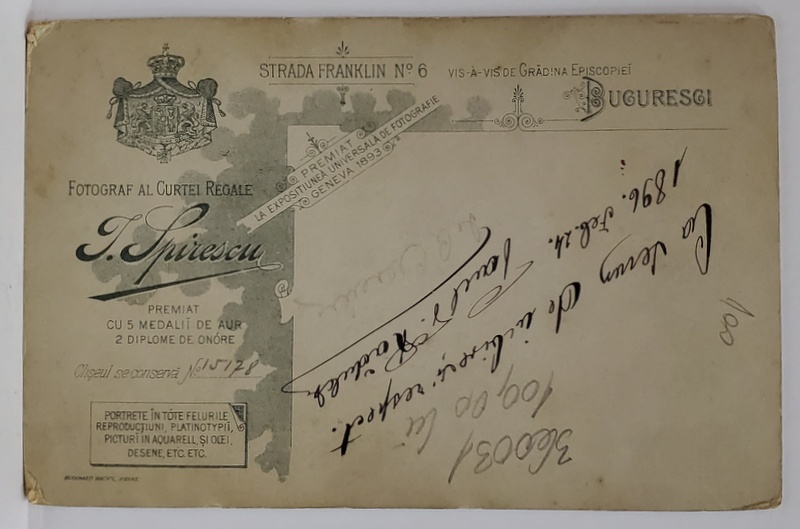 STRADA FRANKLIN No 6
VIS-À-VIS DE GRĂDINA EPISCOPIEĬ
BUCURESCI
PREMIAT
LA EXPOSITIUNEA UNIVERSALA DE FOTOGRAFIE
GENEVA 1893
FOTOGRAF AL CURTEI REGALE
I. Spirescu
PREMIAT
CU 5 MEDALII DE AUR
2 DIPLOME DE ONÓRE
Clişeul se conservă No 15178
PORTRETE ÎN TÓTE FELURILE
REPRODUCŢIUNI, PLATINOTYPII,
PICTURI IN AQUARELL, ŞI OLEI,
DESENE, ETC. ETC.
Ca semn de iubire şi respect.
1896. Feb. 24.
100
100,00 lei
360031